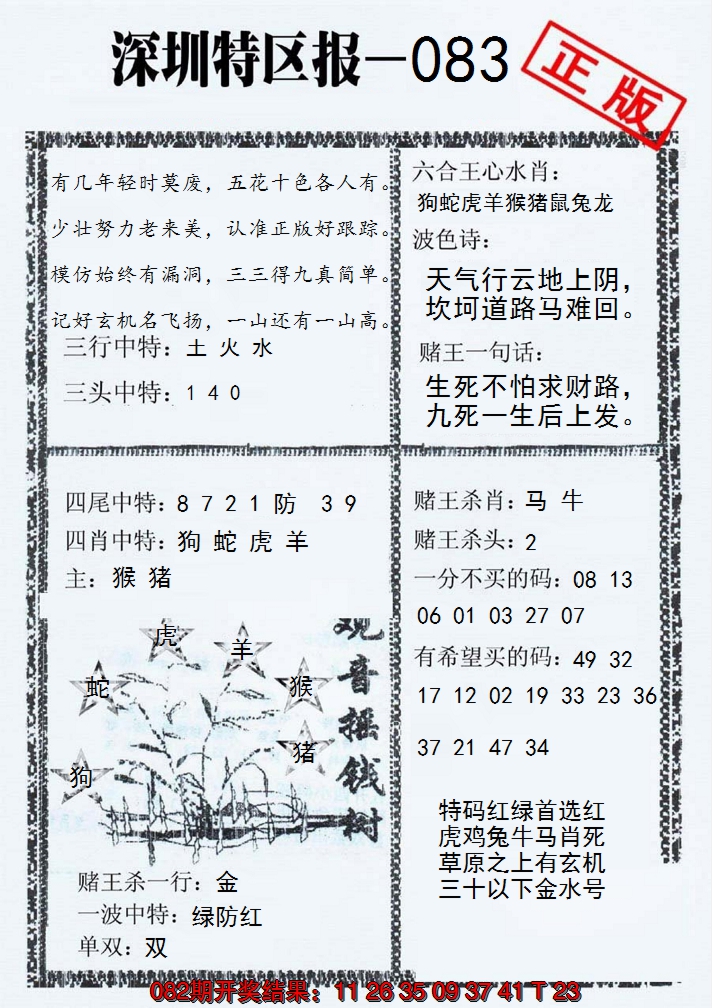 深圳特区报—083
正版
有几年轻时莫废，五花十色各人有。
少壮努力老来美，认准正版好跟踪。
模仿始终有漏洞，三三得九真简单。
记好玄机名飞扬，一山还有一山高。
三行中特：土 火 水
三头中特：1 4 0
六合王心水肖：
狗蛇虎羊猴猪鼠兔龙
波色诗：
天气行云地上阴，
坎坷道路马难回。
赌王一句话：
生死不怕求财路，
九死一生后上发。
四尾中特：8 7 2 1 防 3 9
四肖中特：狗 蛇 虎 羊
主：猴 猪
虎
羊
蛇
猴
猪
狗
观音摇钱树
赌王杀一行：金
一波中特：绿防红
单双：双
赌王杀肖：马 牛
赌王杀头：2
一分不买的码：08 13
06 01 03 27 07
有希望买的码：49 32
17 12 02 19 33 23 36
37 21 47 34
特码红绿首选红
虎鸡兔牛马肖死
草原之上有玄机
三十以下金水号
082期开奖结果：11 26 35 09 37 41 T 23